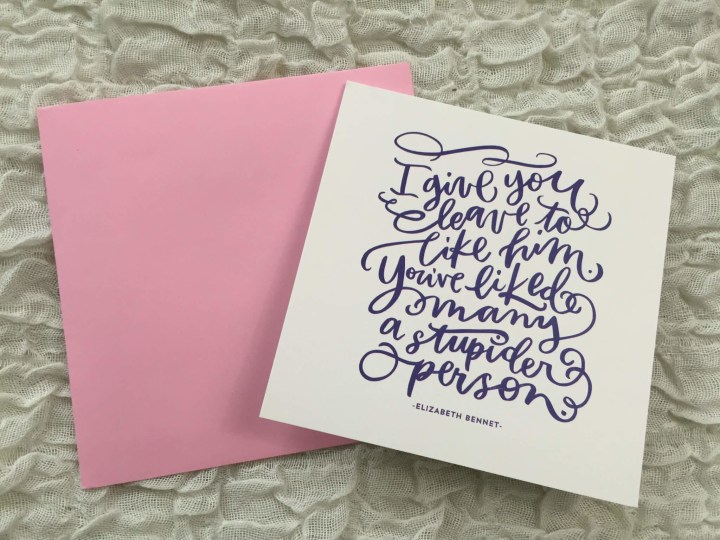 I give you
leave to
like him.
You've liked
many
a stupider
person.
-ELIZABETH BENNET-